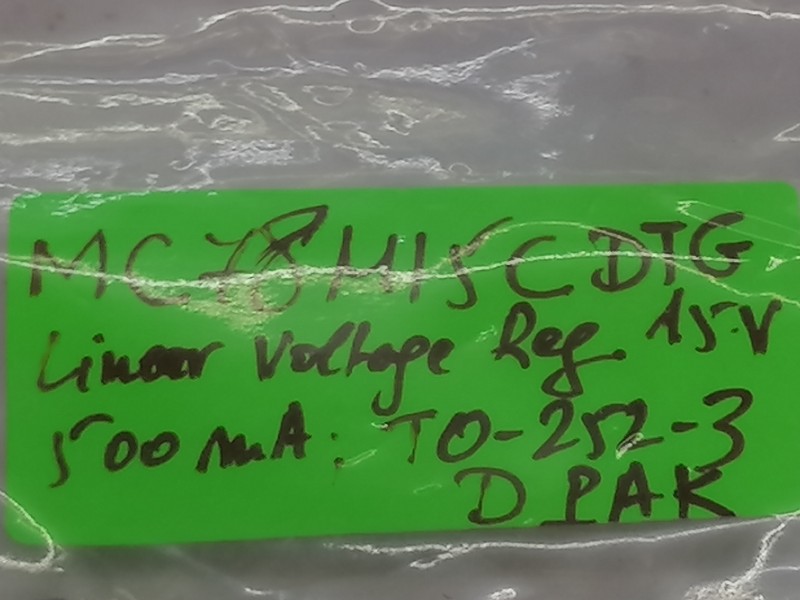 MC78M15CDTG
Linear Voltage Reg. 15V
500mA. TO-252-3
DPAK